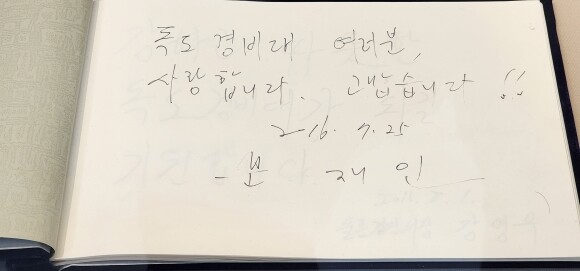 독도 경비대 여러분,
사랑합니다. 고맙습니다!!
2016. 7. 25
- 문 재 인